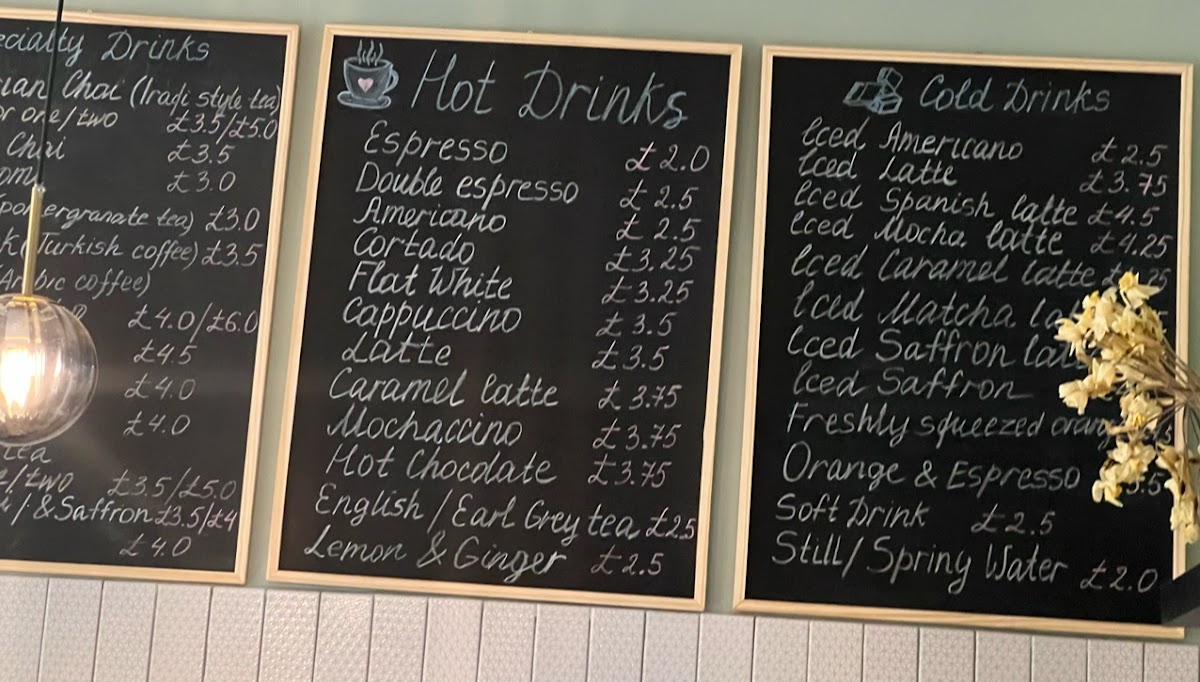 Specialty Drinks
Chai (Iraqi style tea)
or one/two £3.5/£5.0
Chai £3.5
£3.0
(pomergranate tea) £3.0
(Turkish coffee) £3.5
(Arabic coffee)
£4.0/£6.0
£4.5
£4.0
£4.0
tea
/two £3.5/£5.0
& Saffron £3.5/£4
£4.0
Hot Drinks
Espresso £2.0
Double espresso £2.5
Americano £2.5
Cortado £3.25
Flat White £3.25
Cappuccino £3.5
Latte £3.5
Caramel latte £3.75
Mochaccino £3.75
Hot Chocdate £3.75
English / Earl Grey tea £2.5
Lemon & Ginger £2.5
Cold Drinks
Iced Americano £2.5
Iced Latte £3.75
Iced Spanish latte £4.5
Iced Mocha latte £4.25
Iced Caramel latte
Iced Matcha
Iced Saffron
Iced Saffron
Freshly squeezed
Orange & Espresso
Soft Drink £2.5
Still/Spring Water £2.0